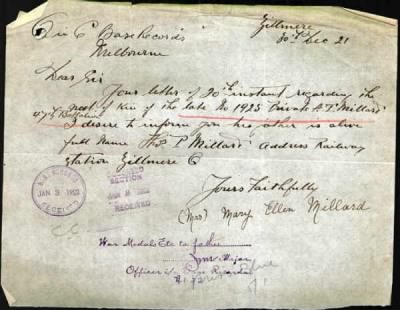 Zillmere
30th Dec 21
Off i/c Base Records
Melbourne
Dear Sir
Your letter of 20th instant regarding the
next of Kin of the late No 1925 Private A. T. Millard
47th Battalion
I desire to inform you his father is alive
full Name Thos P Millard Address Railway
Station Zillmere
Yours Faithfully
(Mrs) Mary Ellen Millard
JAN 3 1922
RECEIVED
SECTION
JAN 1922
RECEIVED
War Medals Etc to father
Major
Officer i/c Base Records